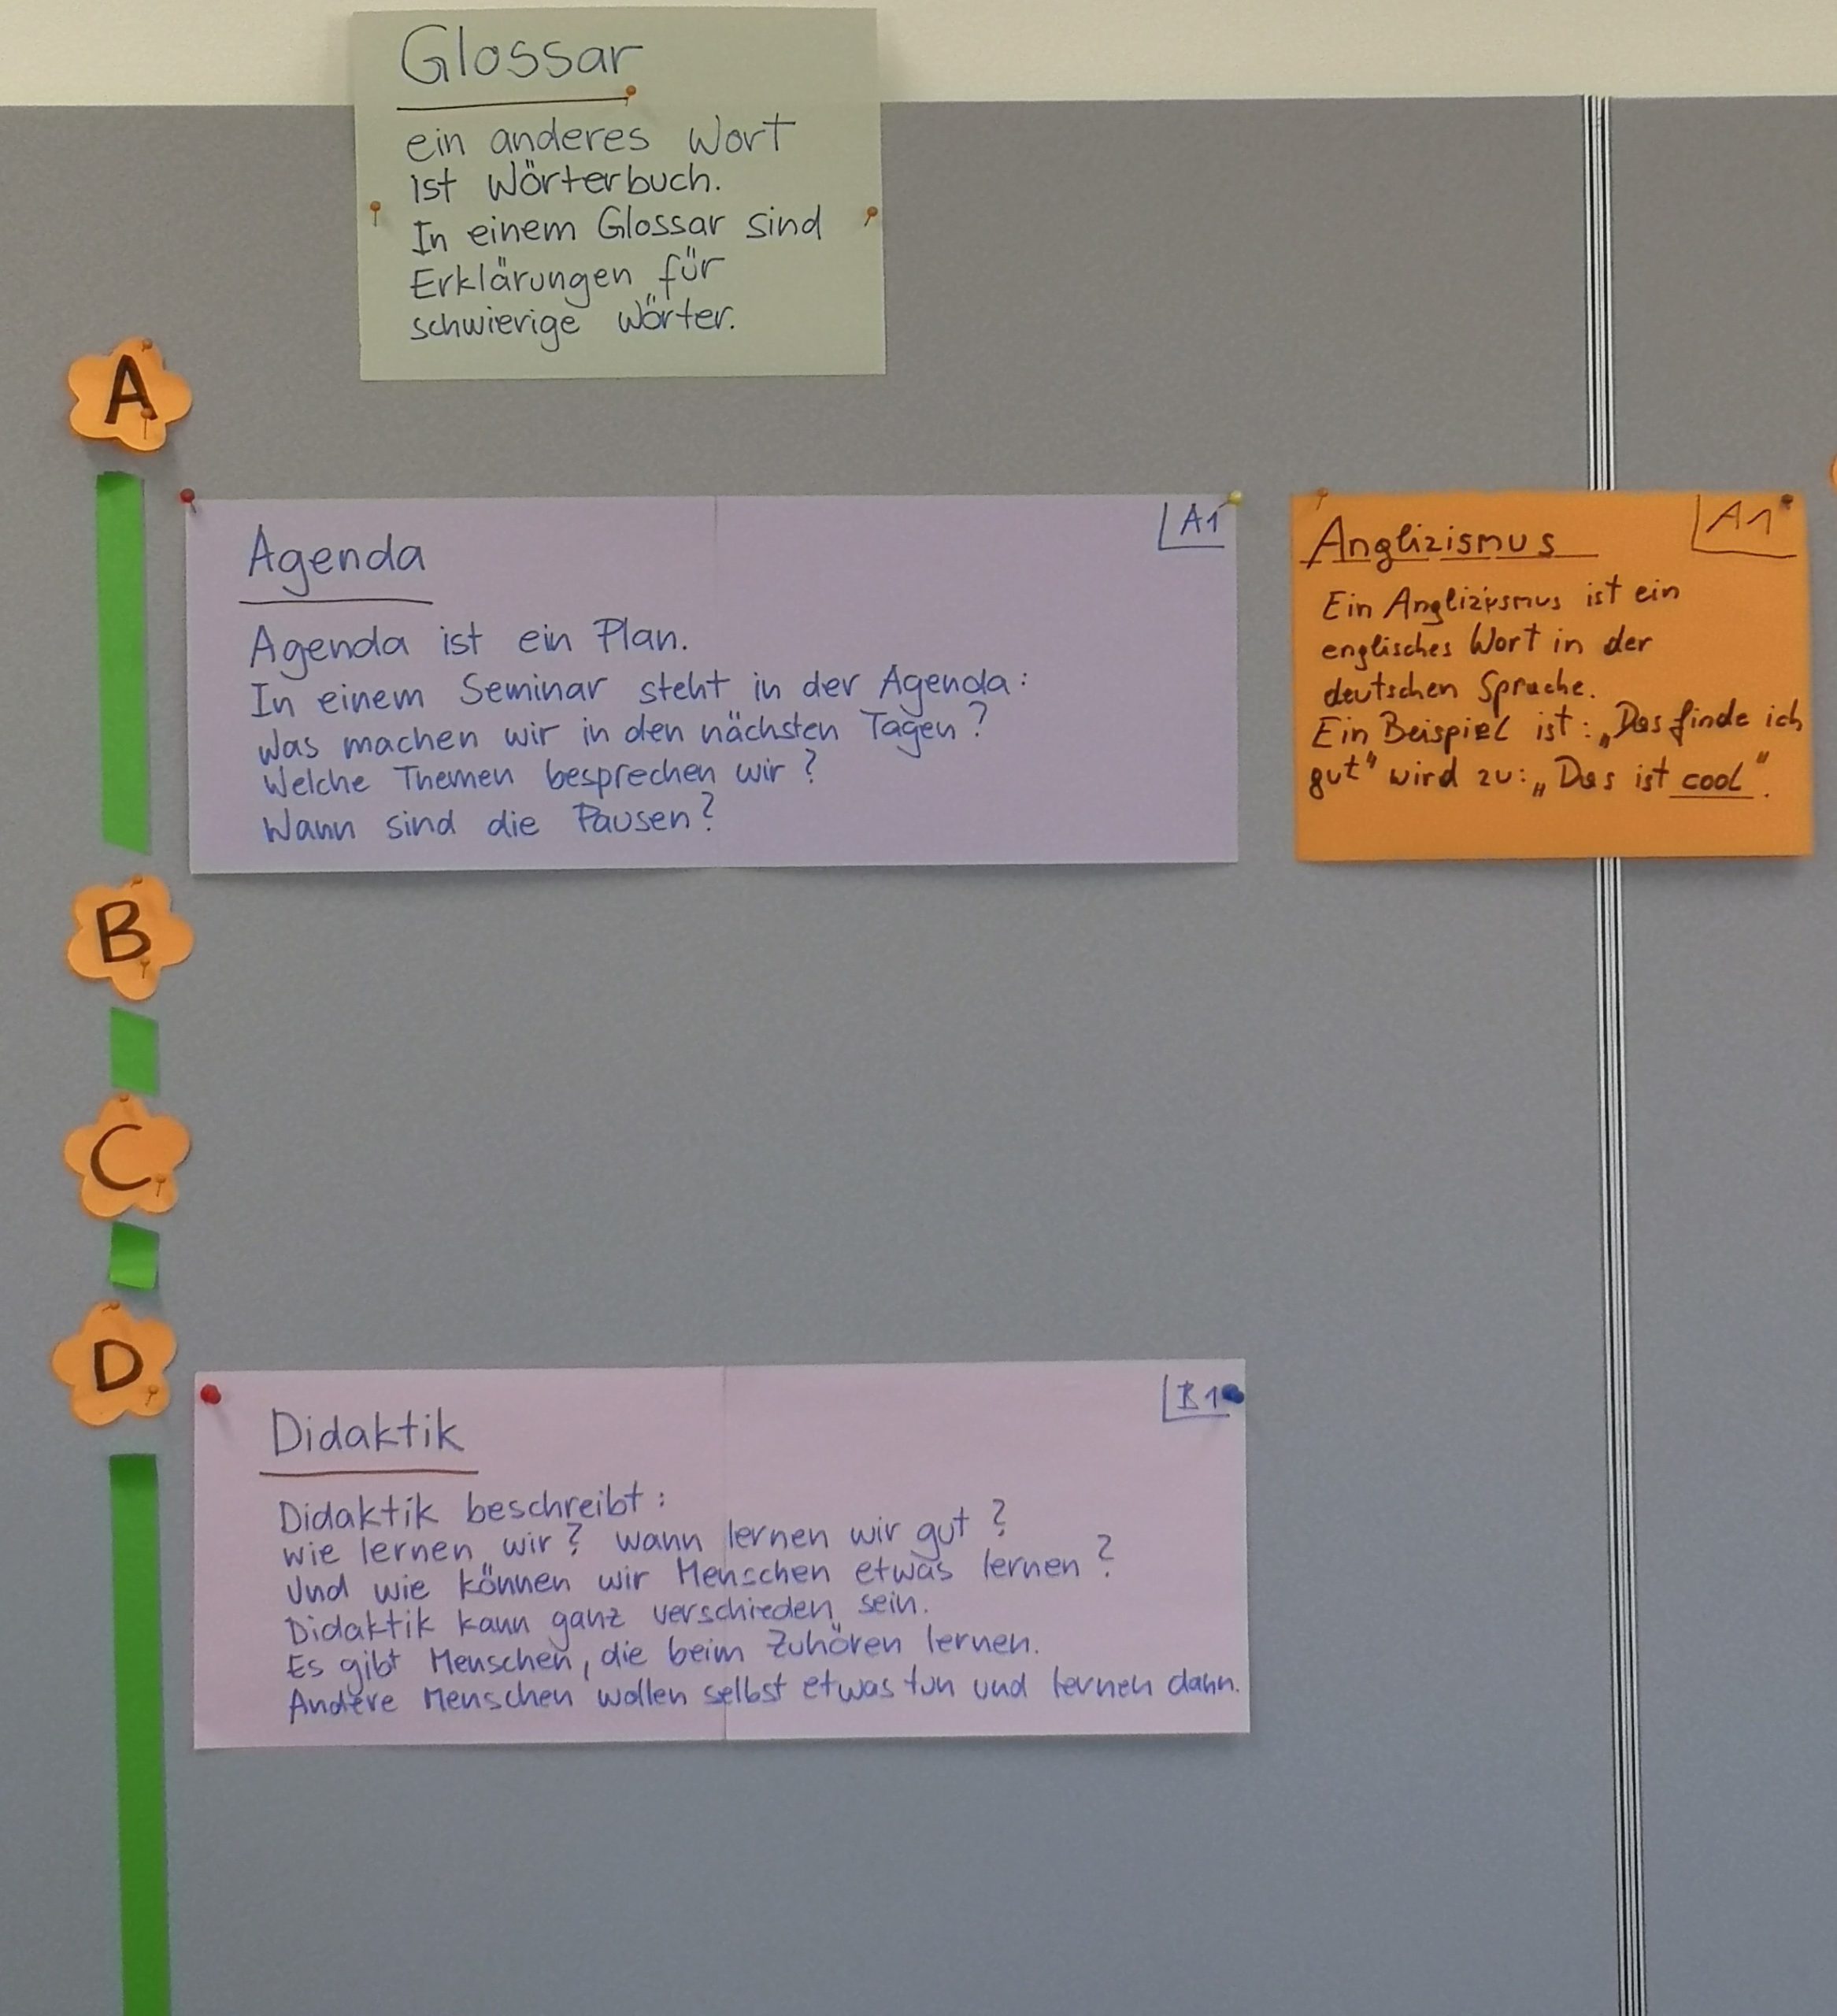 Glossar
ein anderes Wort
ist Wörterbuch.
In einem Glossar sind
Erklärungen für
schwierige Wörter.
A
Agenda
A1
Agenda ist ein Plan.
In einem Seminar steht in der Agenda:
Was machen wir in den nächsten Tagen?
Welche Themen besprechen wir?
Wann sind die Pausen?
Anglizismus
A1
Ein Anglizismus ist ein
englisches Wort in der
deutschen Sprache.
Ein Beispiel ist: „Das finde ich
gut" wird zu: „Das ist cool".
B
C
D
Didaktik
B1
Didaktik beschreibt:
wie lernen wir? wann lernen wir gut?
Und wie können wir Menschen etwas lernen?
Didaktik kann ganz verschieden sein.
Es gibt Menschen, die beim Zuhören lernen.
Andere Menschen wollen selbst etwas tun und lernen dann.